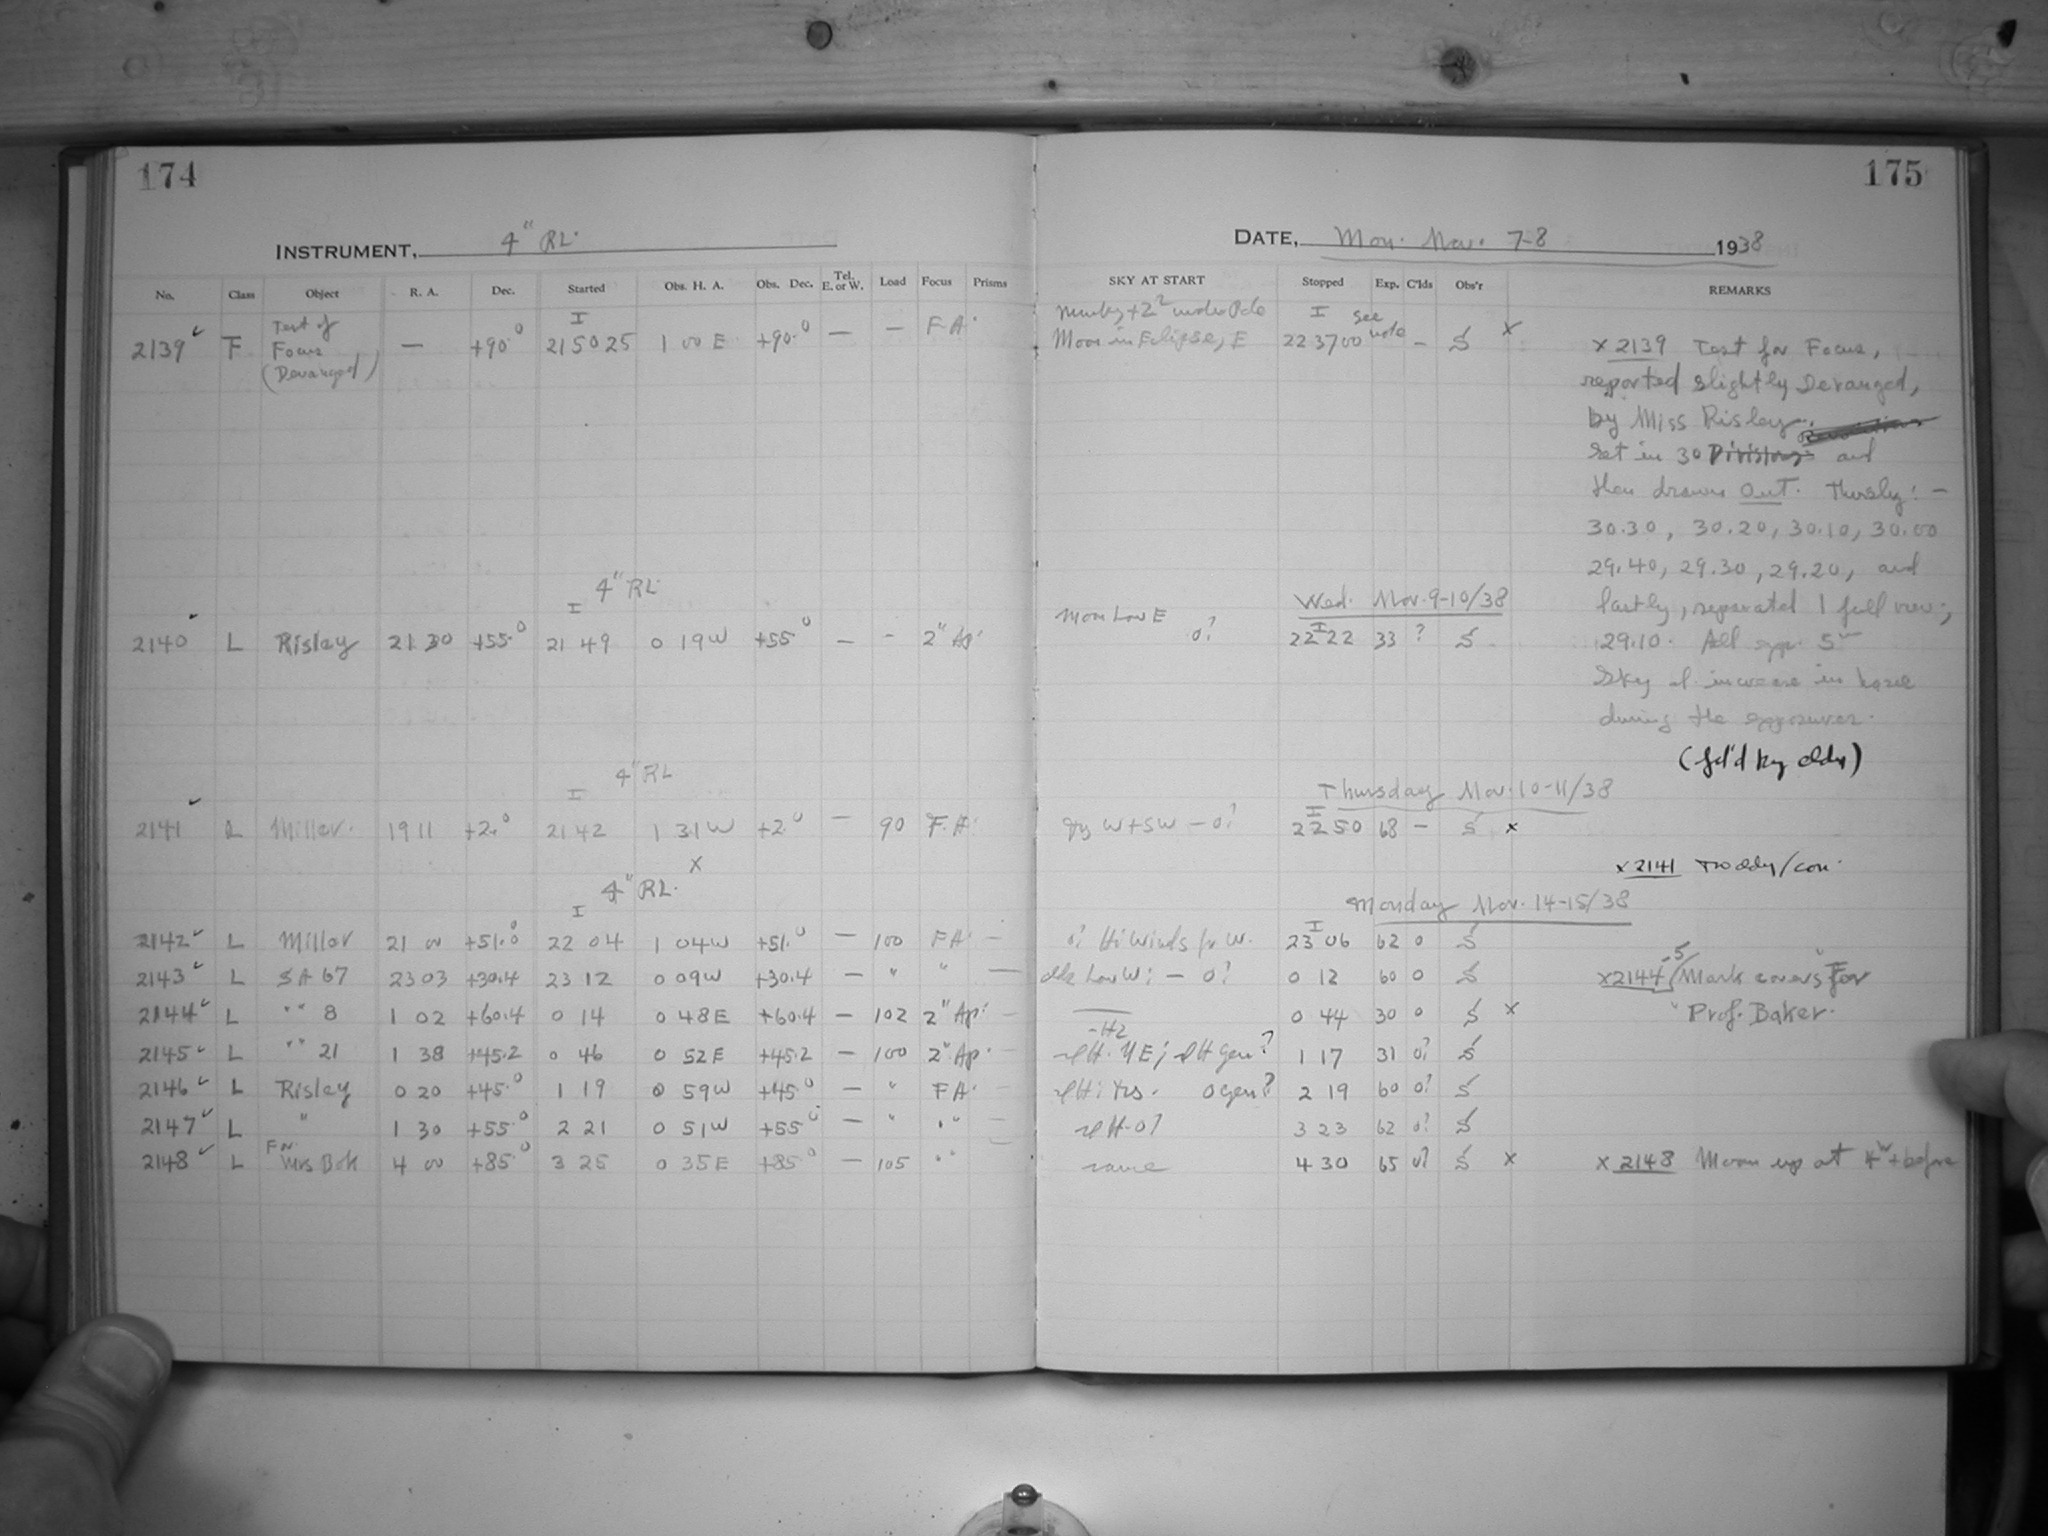 174
175
INSTRUMENT, 4" RL.
DATE, Mon. Nov. 7-8 1938
No. Class Object R. A. Dec. Started Obs. H. A. Obs. Dec. Tel. E. or W. Load Focus Prisms SKY AT START Stopped Exp. C'lds Obs'r REMARKS
2139 F Test of Focus (Deranged) — +90.0 I 21 50 25 1 00 E +90.0 — — F.A. Moon in Eclipse, E I 22 37 00 see note — S x
x 2139 Test for Focus,
reported slightly Deranged,
by Miss Risley.
Set in 30 Divisions and
then drawn Out. Thusly: —
30.30, 30.20, 30.10, 30.00
29.40, 29.30, 29.20, and
lastly, separated 1 full rev;
29.10. All exp. 5
Sky increase in haze
during the exposures.
4" RL. Wed. Nov. 9-10/38
2140 L Risley 21 30 +55.0 I 21 49 0 19 W +55.0 — - 2" Ap. Moon Low E 0? I 22 22 33 ? S
4" RL Thursday Nov. 10-11/38
2141 L Miller. 19 11 +2.0 I 21 42 1 31 W +2.0 — 90 F.A. W + SW — 0? I 22 50 68 — S x
x 2141
x
4" RL. Monday Nov. 14-15/38
2142 L Miller 21 00 +51.0 I 22 04 1 04 W +51.0 — 100 FA. — 0? Hi Winds fr W. I 23 06 62 0 S
2143 L SA 67 23 03 +30.4 23 12 0 09 W +30.4 — " " — Low W; — 0? 0 12 60 0 S
2144 L " " 8 1 02 +60.4 0 14 0 48 E +60.4 — 102 2" Ap. — 0 44 30 0 S x
x 2144-5 Mark covers "For
" Prof. Baker.
2145 L " " 21 1 38 +45.2 0 46 0 52 E +45.2 — 100 2" Ap. — gen? 1 17 31 0? S
2146 L Risley 0 20 +45.0 1 19 0 59 W +45.0 — " FA. — 0 gen? 2 19 60 0? S
2147 L " 1 30 +55.0 2 21 0 51 W +55.0 — " " " — 0? 3 23 62 0? S
2148 L For Mrs Bok 4 00 +85.0 3 25 0 35 E +85.0 — 105 " " same 4 30 65 0? S x
x 2148 Moon up at 4 + before